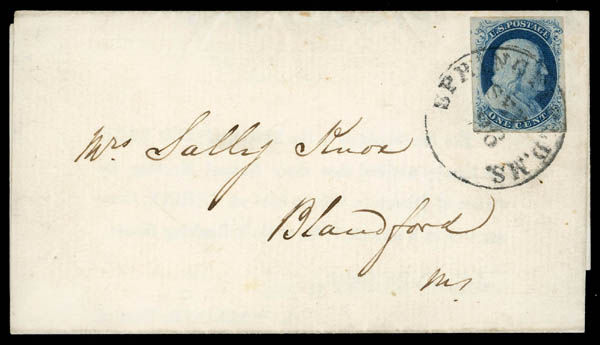 U.S. POSTAGE
ONE CENT
Mrs Sally Knox
Blandford
Ms